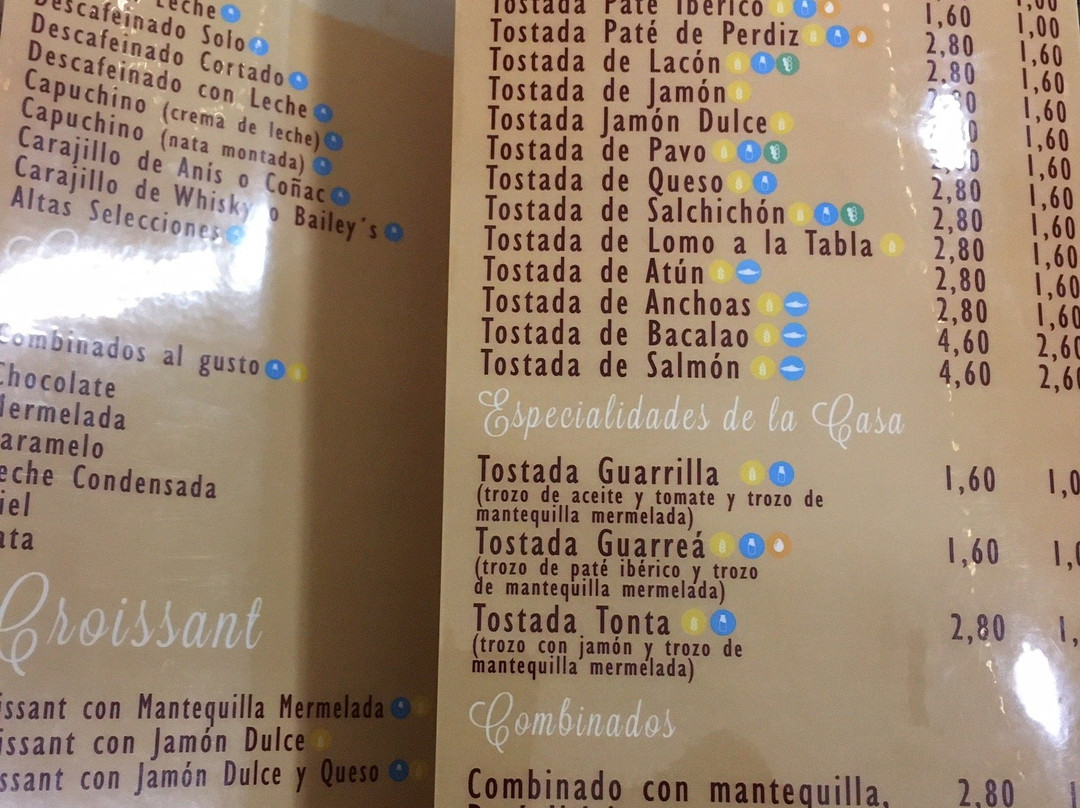 Leche
Descafeinado Solo
Descafeinado Cortado
Descafeinado con Leche
Capuchino (crema de leche)
Capuchino (nata montada)
Carajillo de Anís o Coñac
Carajillo de Whisky o Bailey's
Altas Selecciones
Combinados al gusto
Chocolate
Mermelada
aramelo
eche Condensada
iel
ata
Croissant
issant con Mantequilla Mermelada
issant con Jamón Dulce
ssant con Jamón Dulce y Queso
Tostada Paté Ibérico 1,60 1,00
Tostada Paté de Perdiz 2,80 1,00
Tostada de Lacón 2,80 1,60
Tostada de Jamón 1,60
Tostada Jamón Dulce 1,60
Tostada de Pavo 1,60
Tostada de Queso 2,80 1,60
Tostada de Salchichón 2,80 1,60
Tostada de Lomo a la Tabla 2,80 1,60
Tostada de Atún 2,80 1,60
Tostada de Anchoas 2,80 1,60
Tostada de Bacalao 4,60 2,60
Tostada de Salmón 4,60 2,60
Especialidades de la Casa
Tostada Guarrilla 1,60 1,0
(trozo de aceite y tomate y trozo de
mantequilla mermelada)
Tostada Guarreá 1,60 1,0
(trozo de paté ibérico y trozo
de mantequilla mermelada)
Tostada Tonta 2,80 1,
(trozo con jamón y trozo de
mantequilla mermelada)
Combinados
Combinado con mantequilla, 2,80 1